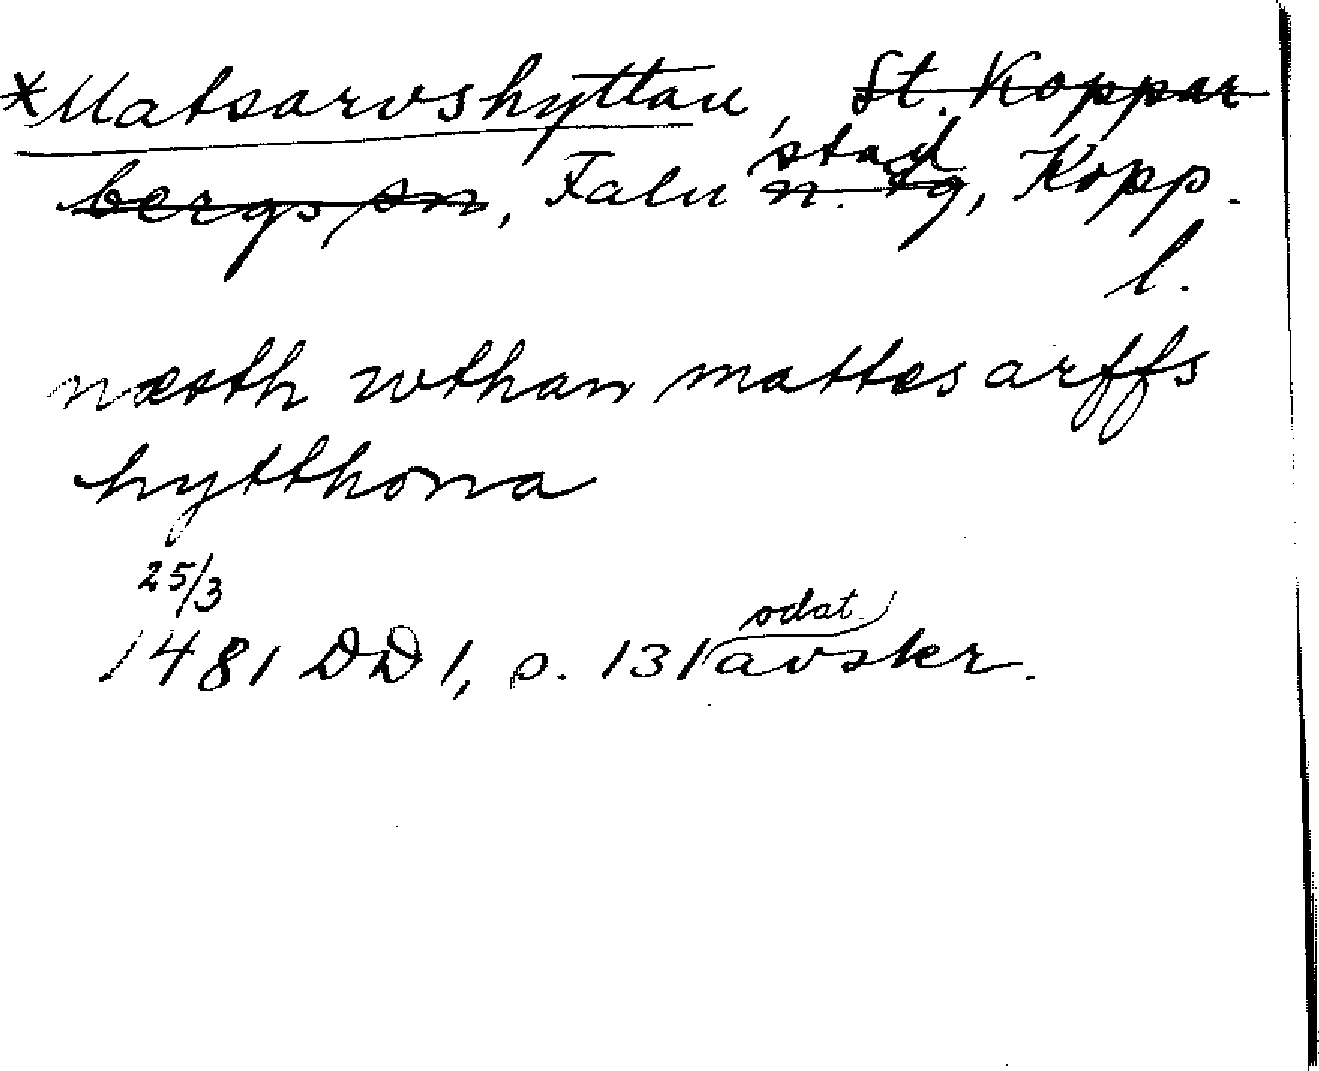 *Matsarvshyttan, St. Koppar
bergs sn, Falu stad n. tg, Kopp.
l.
næsth wthan mattes arffs
hytthona
25/3
1481 DD 1, s. 131 odat. avskr.